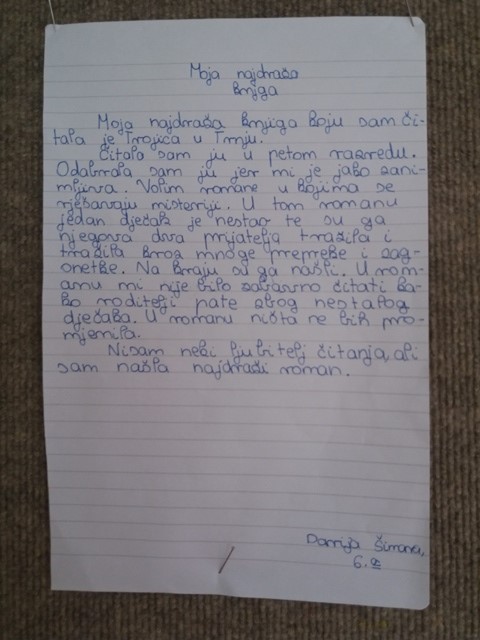 Moja najdraža
knjiga
Moja najdraža knjiga koju sam či-
tala je Trojica u Trnju.
Čitala sam ju u petom razredu.
Odabrala sam ju jer mi je jako zani-
mljiva. Volim romane u kojima se
rješavaju misteriji. U tom romanu
jedan dječak je nestao te su ga
njegova dva prijatelja tražila i
tražila kroz mnoge prepreke i zag-
onetke. Na kraju su ga našli. U rom-
anu mi nije bilo zabavno čitati ka-
ko roditelji pate zbog nestalog
dječaka. U romanu ništa ne bih pro-
mjenila.
Nisam neki ljubitelj čitanja, ali
sam našla najdraži roman.
6.